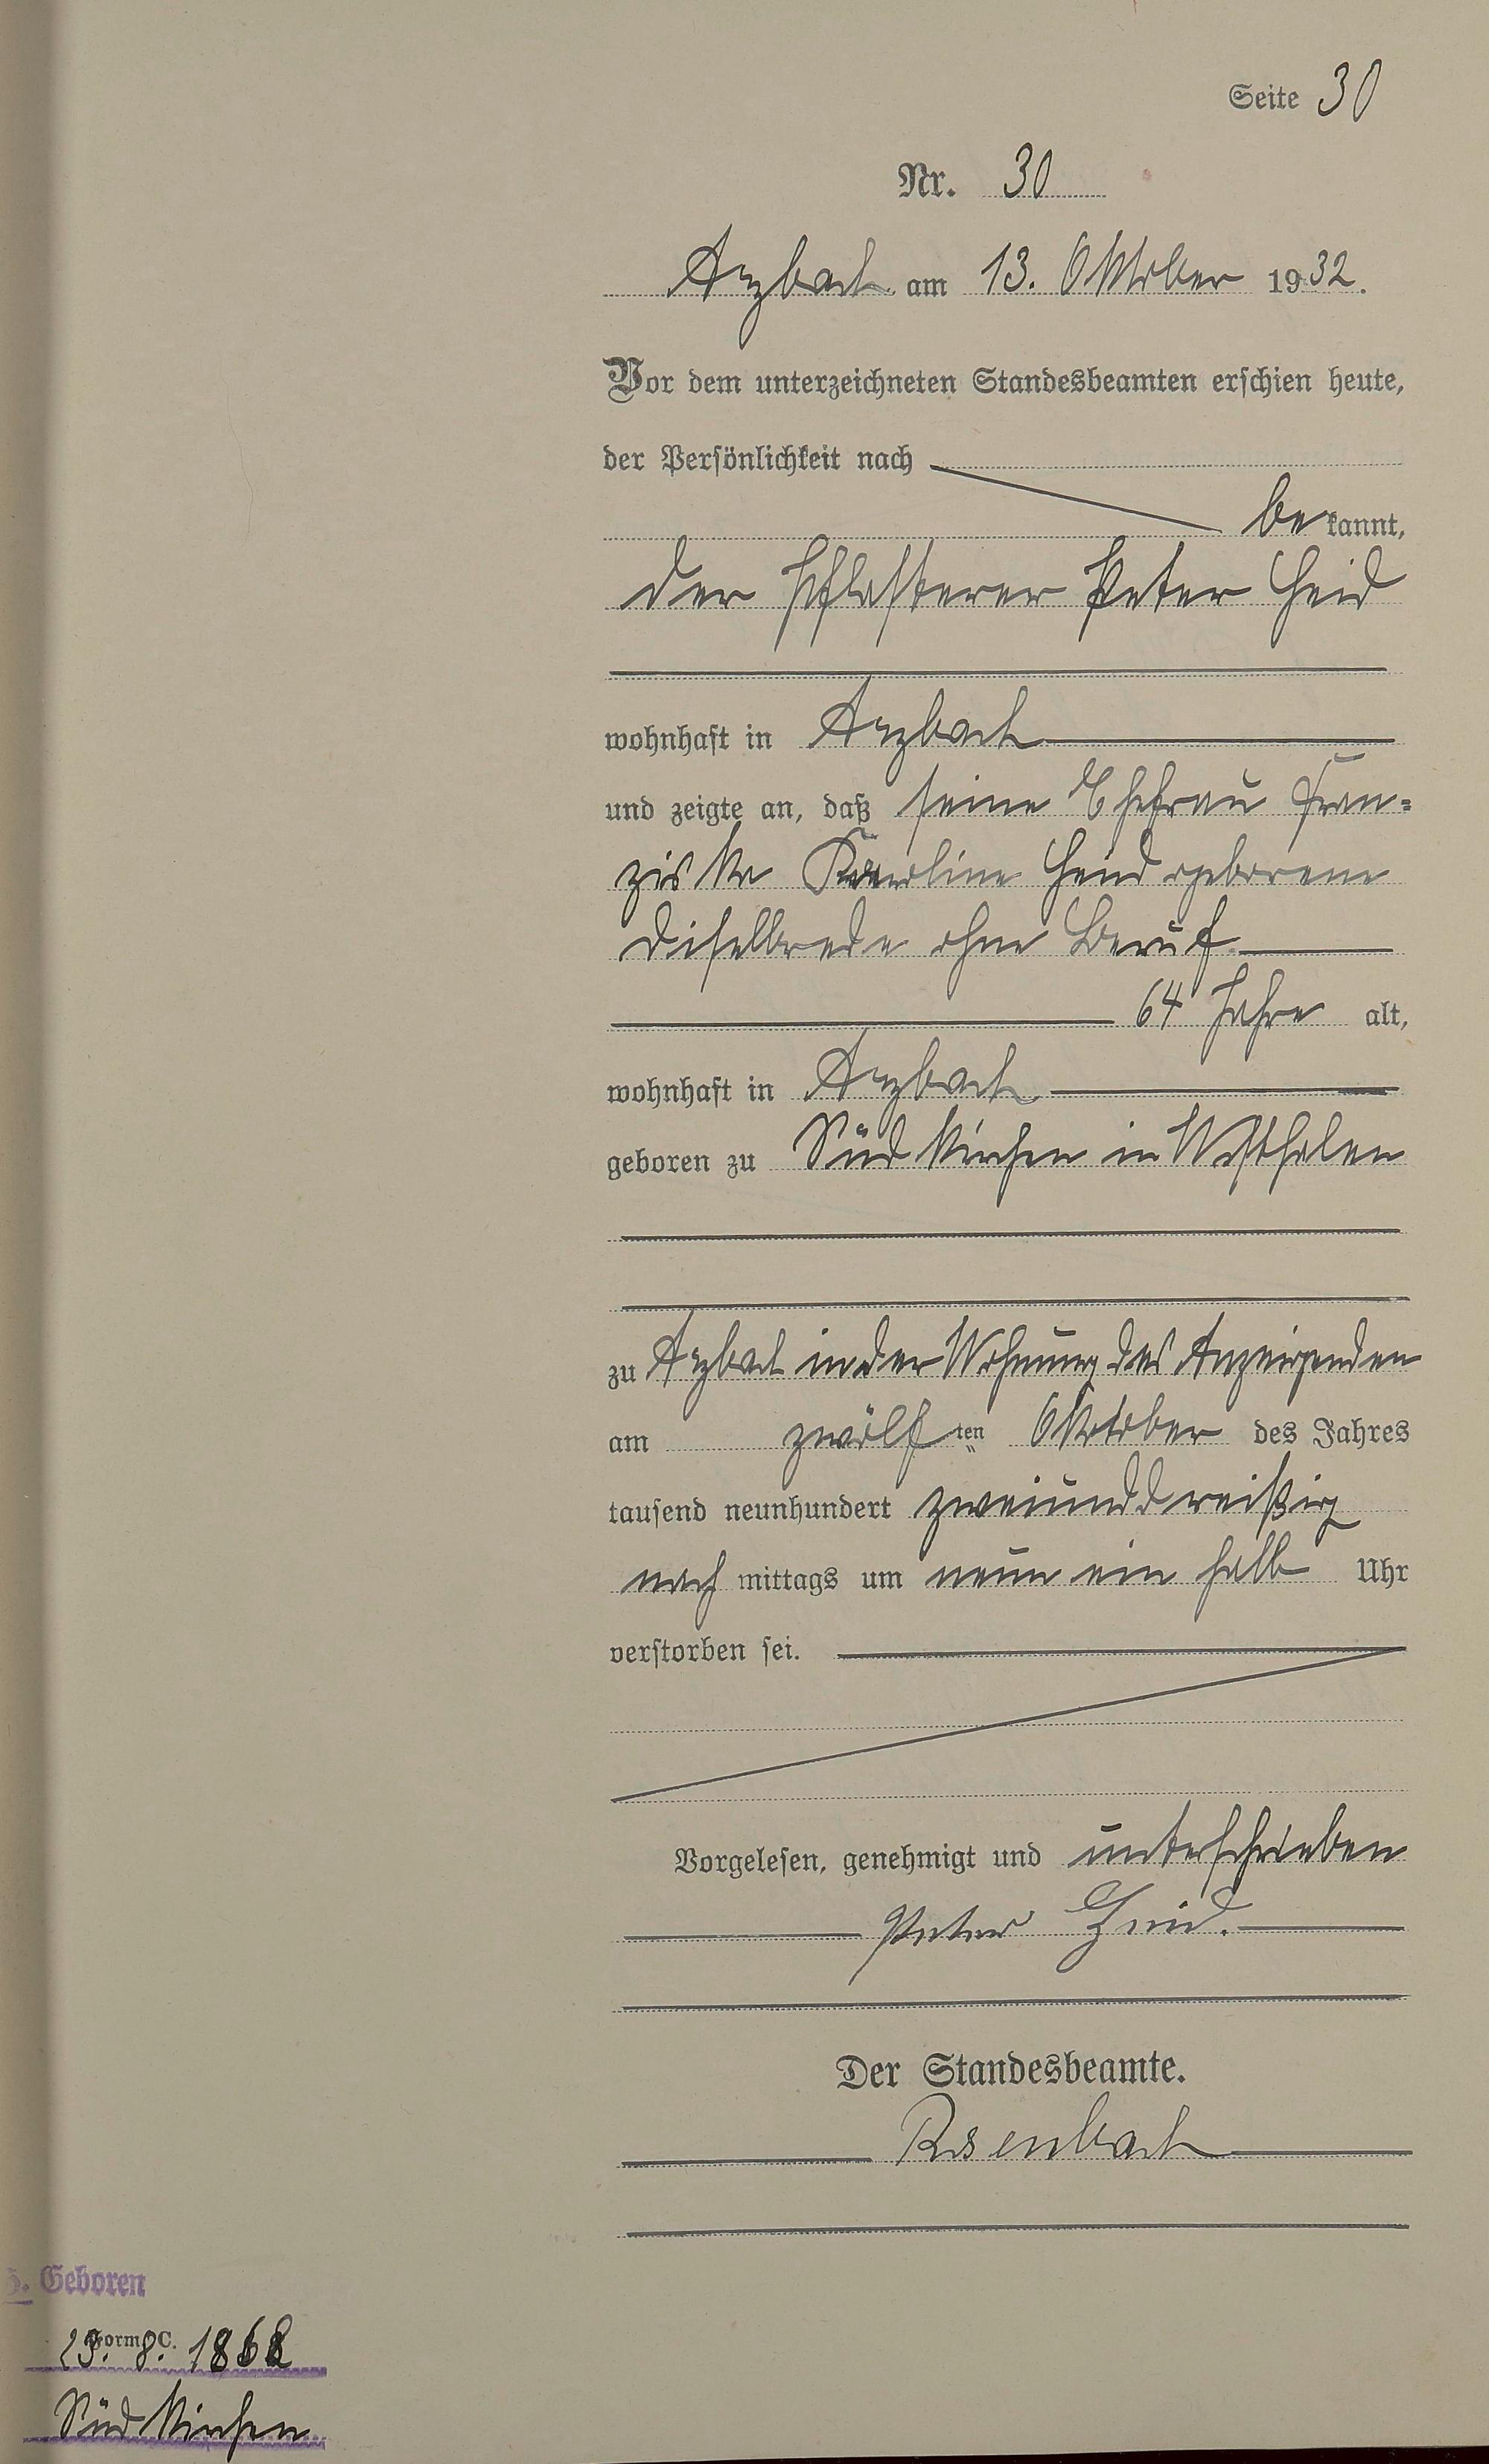 Seite 30
Nr. 30
Arzbach am 13. Oktober 1932.
Vor dem unterzeichneten Standesbeamten erschien heute,
der Persönlichkeit nach
bekannt,
der Pflasterer Peter Heid
wohnhaft in Arzbach
und zeigte an, daß seine Ehefrau Fran-
ziska Karoline Heid geborene
ohne Beruf.
64 Jahre alt,
wohnhaft in Arzbach
geboren zu Südkirchen in Westfalen
zu Arzbach in der Wohnung des Anzeigenden
am zwölften Oktober des Jahres
tausend neunhundert zweiunddreißig
nachmittags um neun ein halb Uhr
verstorben sei.
Vorgelesen, genehmigt und unterschrieben
Peter Heid.
Der Standesbeamte.
Rosenbach
Geboren
Form C.
8. 1868
Südkirchen